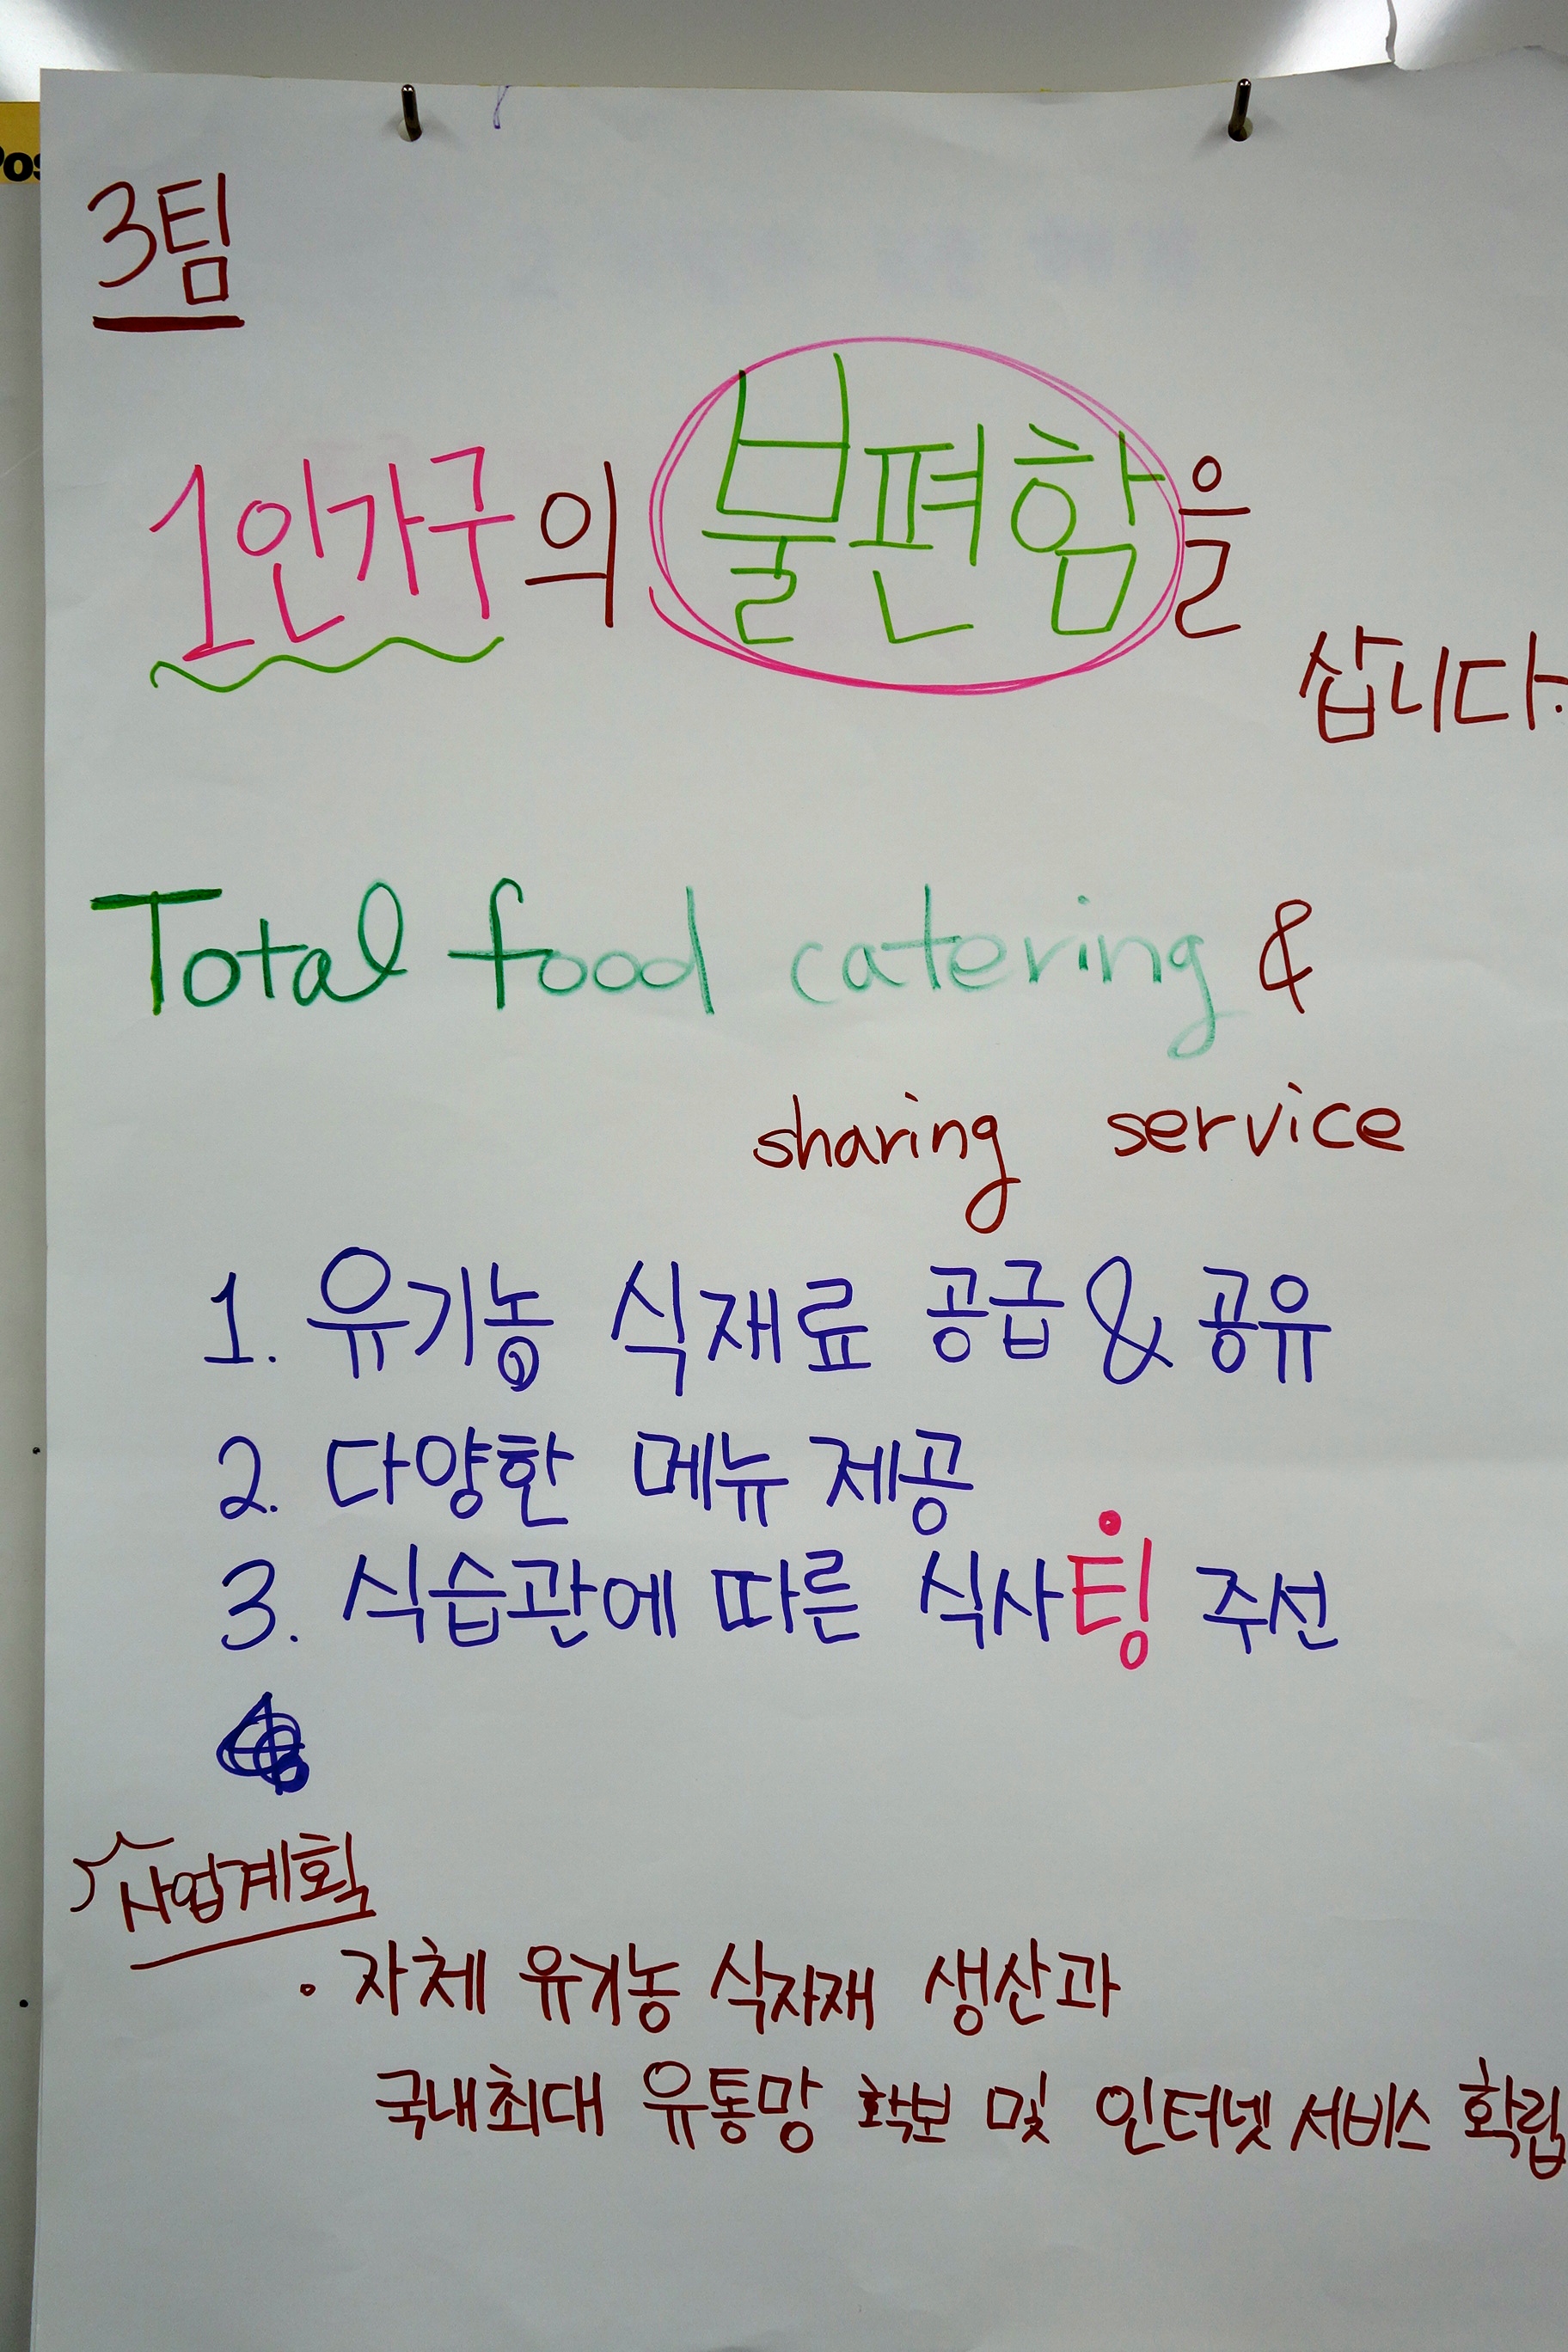 Pos
3팀
1인가구의 불편함을
삽니다.
Total food catering &
sharing service
1. 유기농 식재료 공급 & 공유
2. 다양한 메뉴 제공
3. 식습관에 따른 식사팅 주선
사업계획
· 자체 유기농 식자재 생산과
국내최대 유통망 확보 및 인터넷 서비스 확립